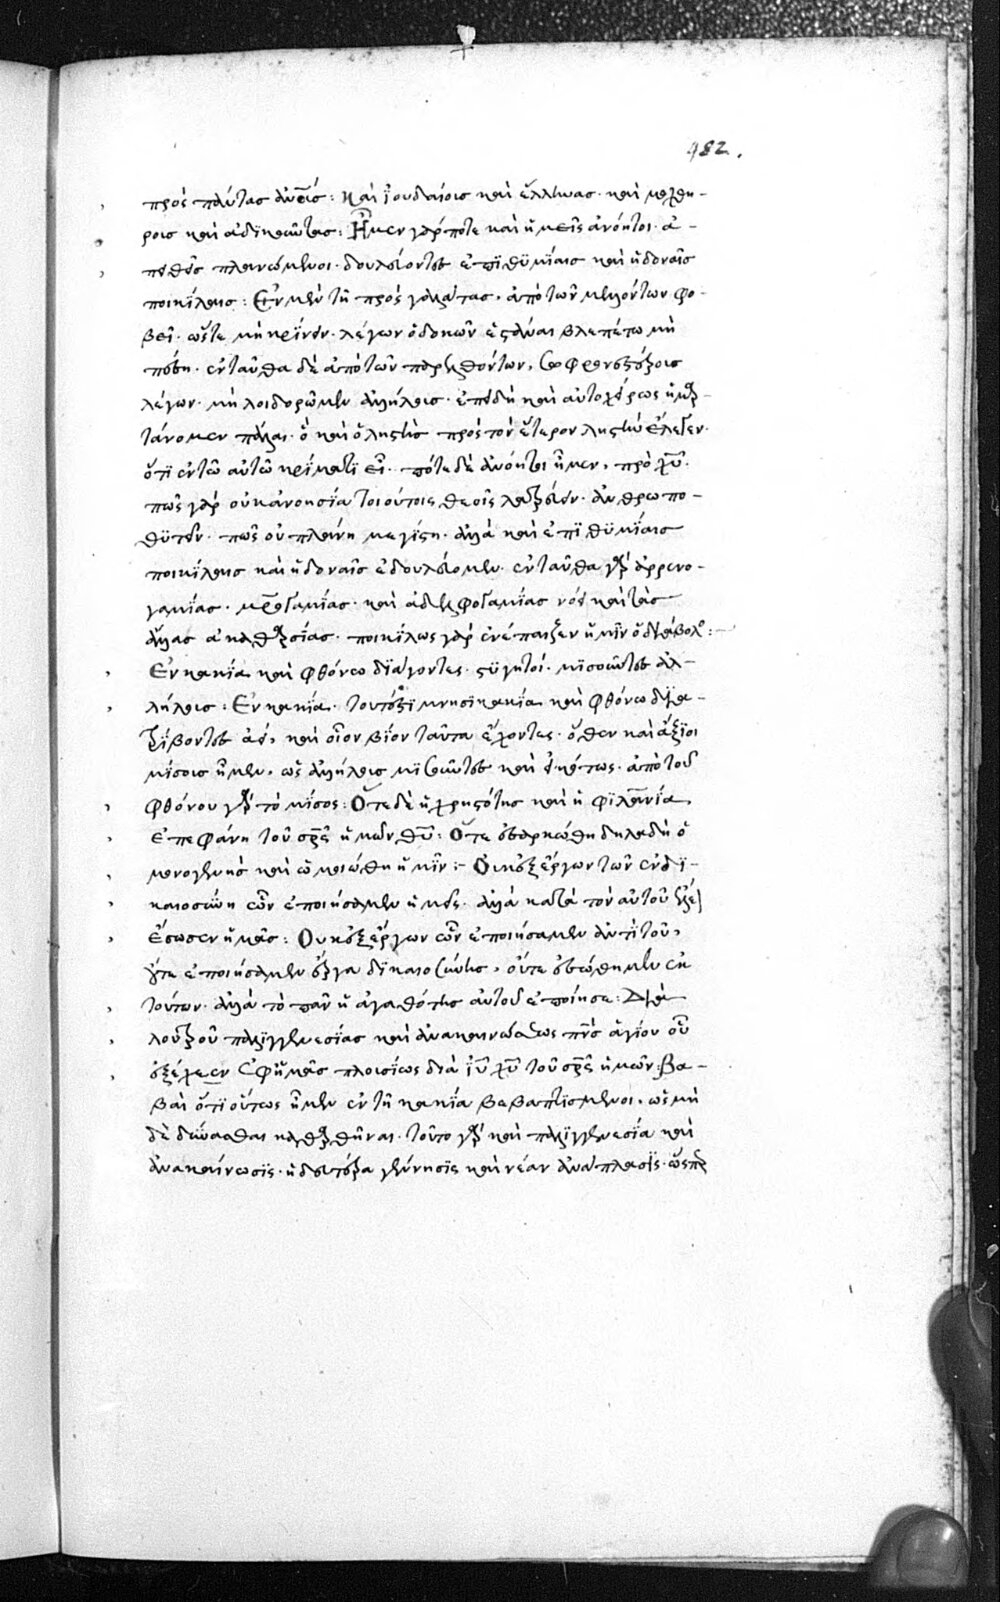 482.
πρὸς πάντας ἀν̅ο̅ις: Καὶ ἰουδαίοις καὶ ἕλληνας· καὶ μοχθη-
ροις καὶ ἀδϊκοῦντας: Ἦμεν γάρ ποτε καὶ ἡμεῖς ἀνόητοι· ἀ-
πειθεῖς πλανώμενοι· δουλεύοντες ἐπϊθϋμΐαις καὶ ἡδοναῖς
ποικίλαις: Ἐν μὲν τῆ πρὸς γαλάτας, ἀπὸ τῶν μελλόντων φο-
βεῖ· ὥστε μὴ κρΐνειν· λέγων ὁ δοκῶν ἑστάναι βλεπέτω μὴ
πέση· ἐνταῦθα δὲ ἀπὸ τῶν παρελθόντων, σωφρονεστέροις
λέγων· μὴ λοιδορῶμεν ἀλλήλοις· ἐπειδὴ καὶ αὐτοχείρως ἡμαρ-
τάνομεν πάλαι· ὃ καὶ ὁ ληστὴς πρὸς τὸν ἕτερον ληστὴν ἔλεγεν·
ὅτι ἐν τῶ αὐτῶ κρΐματϊ εἶ· πότε δὲ ἀνόητοι ἦμεν, πρὸ χ̅υ̅·
πῶς γὰρ οὐκ ἀνοησία τοιούτοις θεοῖς λατρεύειν· ἀνθρωπο-
θϋτεῖν· πῶς οὐ πλάνη μεγίστη· ἀλλὰ καὶ ἐπϊθϋμΐαις
ποικίλαις καὶ ἡδοναῖς ἐδουλεύομεν· ἐνταῦθα γὰρ ἀρρενο-
γαμίας· μητρογαμΐας· καὶ ἀδελφογαμΐας νόει καὶ τὰς
ἄλλας ἀκαθαρσίας· ποικίλως γὰρ ἐνέπαιξεν ἡμῖν ὁ διάβολος:
Ἐν κακΐα καὶ φθόνω διάγοντες· στϋγητοί· μϊσοῦντες ἀλ-
λήλοις: Ἐν κακΐα· τουτέστι μνησϊκακΐα καὶ φθόνω διΐα-
τρΐβοντες ἀεί, καὶ οἷον βΐον ταῦτα ἔχοντες· ὅθεν καὶ ἄξϊοι
μίσοις ἦμεν, ὡς ἀλλήλοις μϊσοῦντες καὶ εἰκότως· ἀπὸ τοῦ
φθόνου γὰρ τὸ μῖσος: Ὅτε δὲ ἡ χρηστότης καὶ ἡ φϊλαν̅ΐα
ἐπεφάνη τοῦ σ̅ρ̅ς ἡμῶν θ̅υ̅: Ὅτε ἐσαρκώθη δηλαδὴ ὁ
μονογενὴς καὶ ὡμοιώθη ἡμῖν:- Οὐκ ἐξ ἔργων τῶν ἐν δϊ-
καιοσύνη ὧν ἐποιήσαμεν ἡμεῖς· ἀλλὰ κατὰ τὸν αὐτοῦ ἔλε
ἔσωσεν ἡμᾶς: Οὐκ ἐξ ἔργων ὧν ἐποιήσαμεν ἀντὶ τοῦ,
οὔτε ἐποιήσαμεν ἔργα δϊκαιοσύνης, οὔτε ἐσώθημεν ἐκ
τούτων· ἀλλὰ τὸ πᾶν ἡ ἀγαθότης αὐτοῦ ἐποίησε: Διὰ
λουτροῦ παλιγγενεσίας καὶ ἀνακαινώσεως π̅ν̅ς ἁγίου οὗ
ἐξέχεεν ἐφ' ἡμᾶς πλουσίως διὰ ι̅υ̅ χ̅υ̅ τοῦ σ̅ρ̅ς ἡμῶν: Βα-
βαὶ ὅτι οὕτως ἦμεν ἐν τῆ κακΐα βεβαπτϊσμένοι, ὡς μὴ
δὲ δύνασθαι καθαρθῆναι· τοῦτο γὰρ καὶ παλιγγενεσία καὶ
ἀνακαίνωσϊς· ἡ δευτέρα γέννησϊς καὶ νέαν ἀνάπλασϊς· ὥσπερ